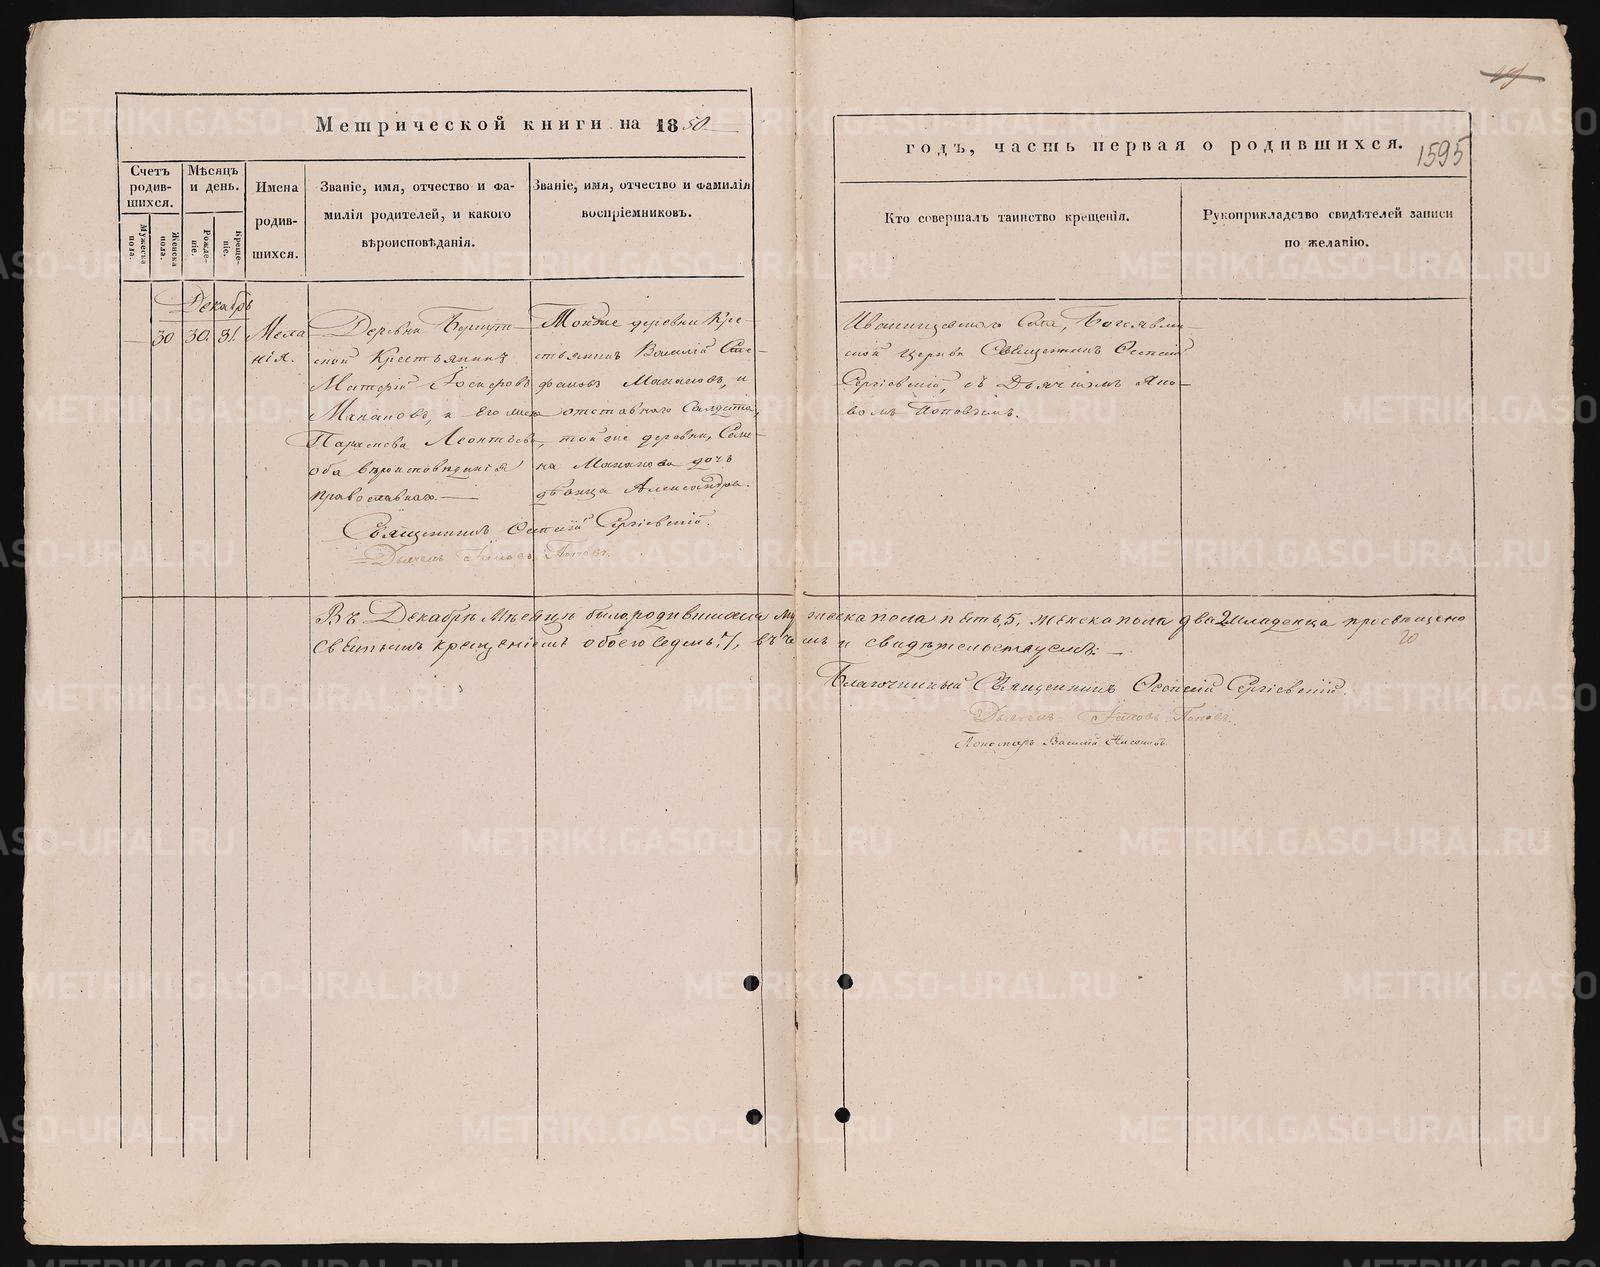 Метрической книги на 1850
годъ, часть первая о родившихся.
1595
Счетъ родившихся.
Мужеска пола.
Женска пола.
Мѣсяцъ и день.
Рожденіе.
Крещеніе.
Имена родившихся.
Званіе, имя, отчество и фамилія родителей, и какого вѣроисповѣданія.
Званіе, имя, отчество и фамилія воспріемниковъ.
Кто совершалъ таинство крещенія.
Рукоприкладство свидѣтелей записи по желанію.
Декабрь
30 30. 31.
Мела
нія.
Деревни
ской Крестьянинъ
Макановъ, и его жена
Параскева Леонтьева,
оба вѣроисповѣданія
православнаго.
Тойже деревни Кре-
стьянинъ Василій Сте-
фановъ Макановъ, и
отставнаго Солдата,
той же деревни, Семе-
на Маканова дочь
дѣвица Александра.
Села, Богоявлен-
ской церкви Священникъ
Сергіевскій, съ Дьячкомъ Яко-
вомъ Поповымъ.
Священникъ Сергіевскій.
Дьячекъ Іаковъ Поповъ.
Въ Декабрѣ Мѣсяцѣ было родившихся мужеска пола пять, 5, женска пола два 2 младенца просвѣщено
Святымъ крещеніемъ обоего седмь, 7, въ чемъ и свидѣтельствуемъ:
Благочинный Священникъ Сергіевскій.
Дьячекъ Іаковъ Поповъ.
Пономарь Василій
METRIKI.GASO-URAL.RU